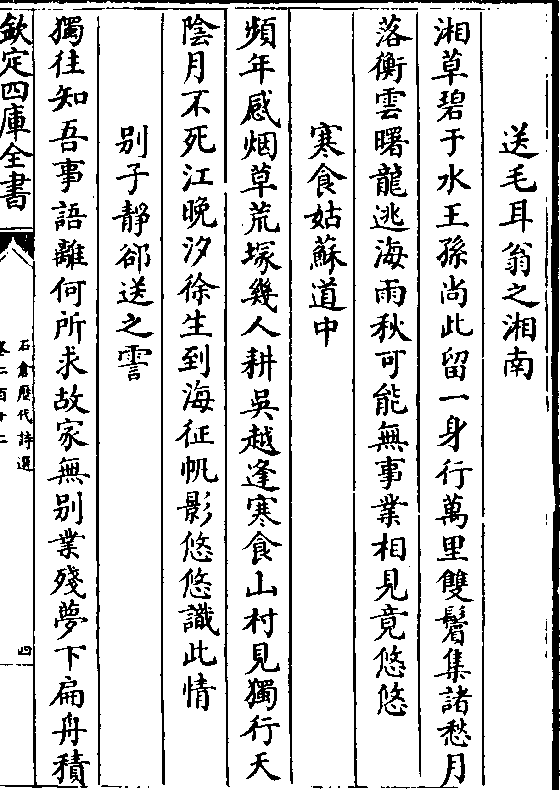 送毛耳翁之湘南
湘草碧于水王孫尚此留一身行萬里雙鬢集諸愁月
落衡雲曙龍逃海雨秋可能無事業相見竟悠悠
寒食姑蘇道中
頻年感烟草荒塚幾人耕吳越逢寒食山村見獨行天
陰月不死江晚汐徐生到海征帆影悠悠識此情
别子靜郤送之霅
獨往知吾事語離何所求故家無别業殘夢下扁舟積
欽定四庫全書
石倉歷代詩選
卷二百十二
四